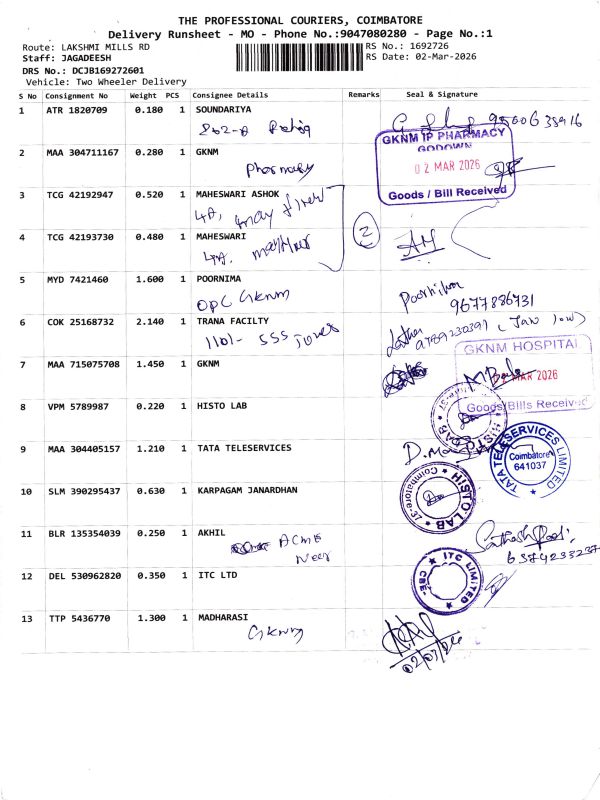 THE PROFESSIONAL COURIERS, COIMBATORE
Delivery Runsheet - MO - Phone No.:9047080280 - Page No.:1
Route: LAKSHMI MILLS RD
RS No.: 1692726
Staff: JAGADEESH
RS Date: 02-Mar-2026
DRS No.: DCJB169272601
Vehicle: Two Wheeler Delivery
S No Consignment No Weight PCS Consignee Details Remarks Seal & Signature
1 ATR 1820709 0.180 1 SOUNDARIYA
2 MAA 304711167 0.280 1 GKNM
Pharmacy
GKNM IP PHARMACY
GODOWN
02 MAR 2026
Goods / Bill Received
3 TCG 42192947 0.520 1 MAHESWARI ASHOK
4A, may flower
4 TCG 42193730 0.480 1 MAHESWARI
4A, mayflower
2
5 MYD 7421460 1.600 1 POORNIMA
OPC GKNM
Poornima
9677886731
6 COK 25168732 2.140 1 TRANA FACILTY
1101- SSS Tower
7 MAA 715075708 1.450 1 GKNM
GKNM HOSPITAL
MAR 2026
Goods/Bills Received
8 VPM 5789987 0.220 1 HISTO LAB
9 MAA 304405157 1.210 1 TATA TELESERVICES
TATA TELESERVICES LIMITED
Coimbatore
641037
10 SLM 390295437 0.630 1 KARPAGAM JANARDHAN
HISTO LAB
Coimbatore-37
11 BLR 135354039 0.250 1 AKHIL
ACME
Neer
6374233237
12 DEL 530962820 0.350 1 ITC LTD
ITC LIMITED
CBE-
13 TTP 5436770 1.300 1 MADHARASI
GKNM
02/03/26